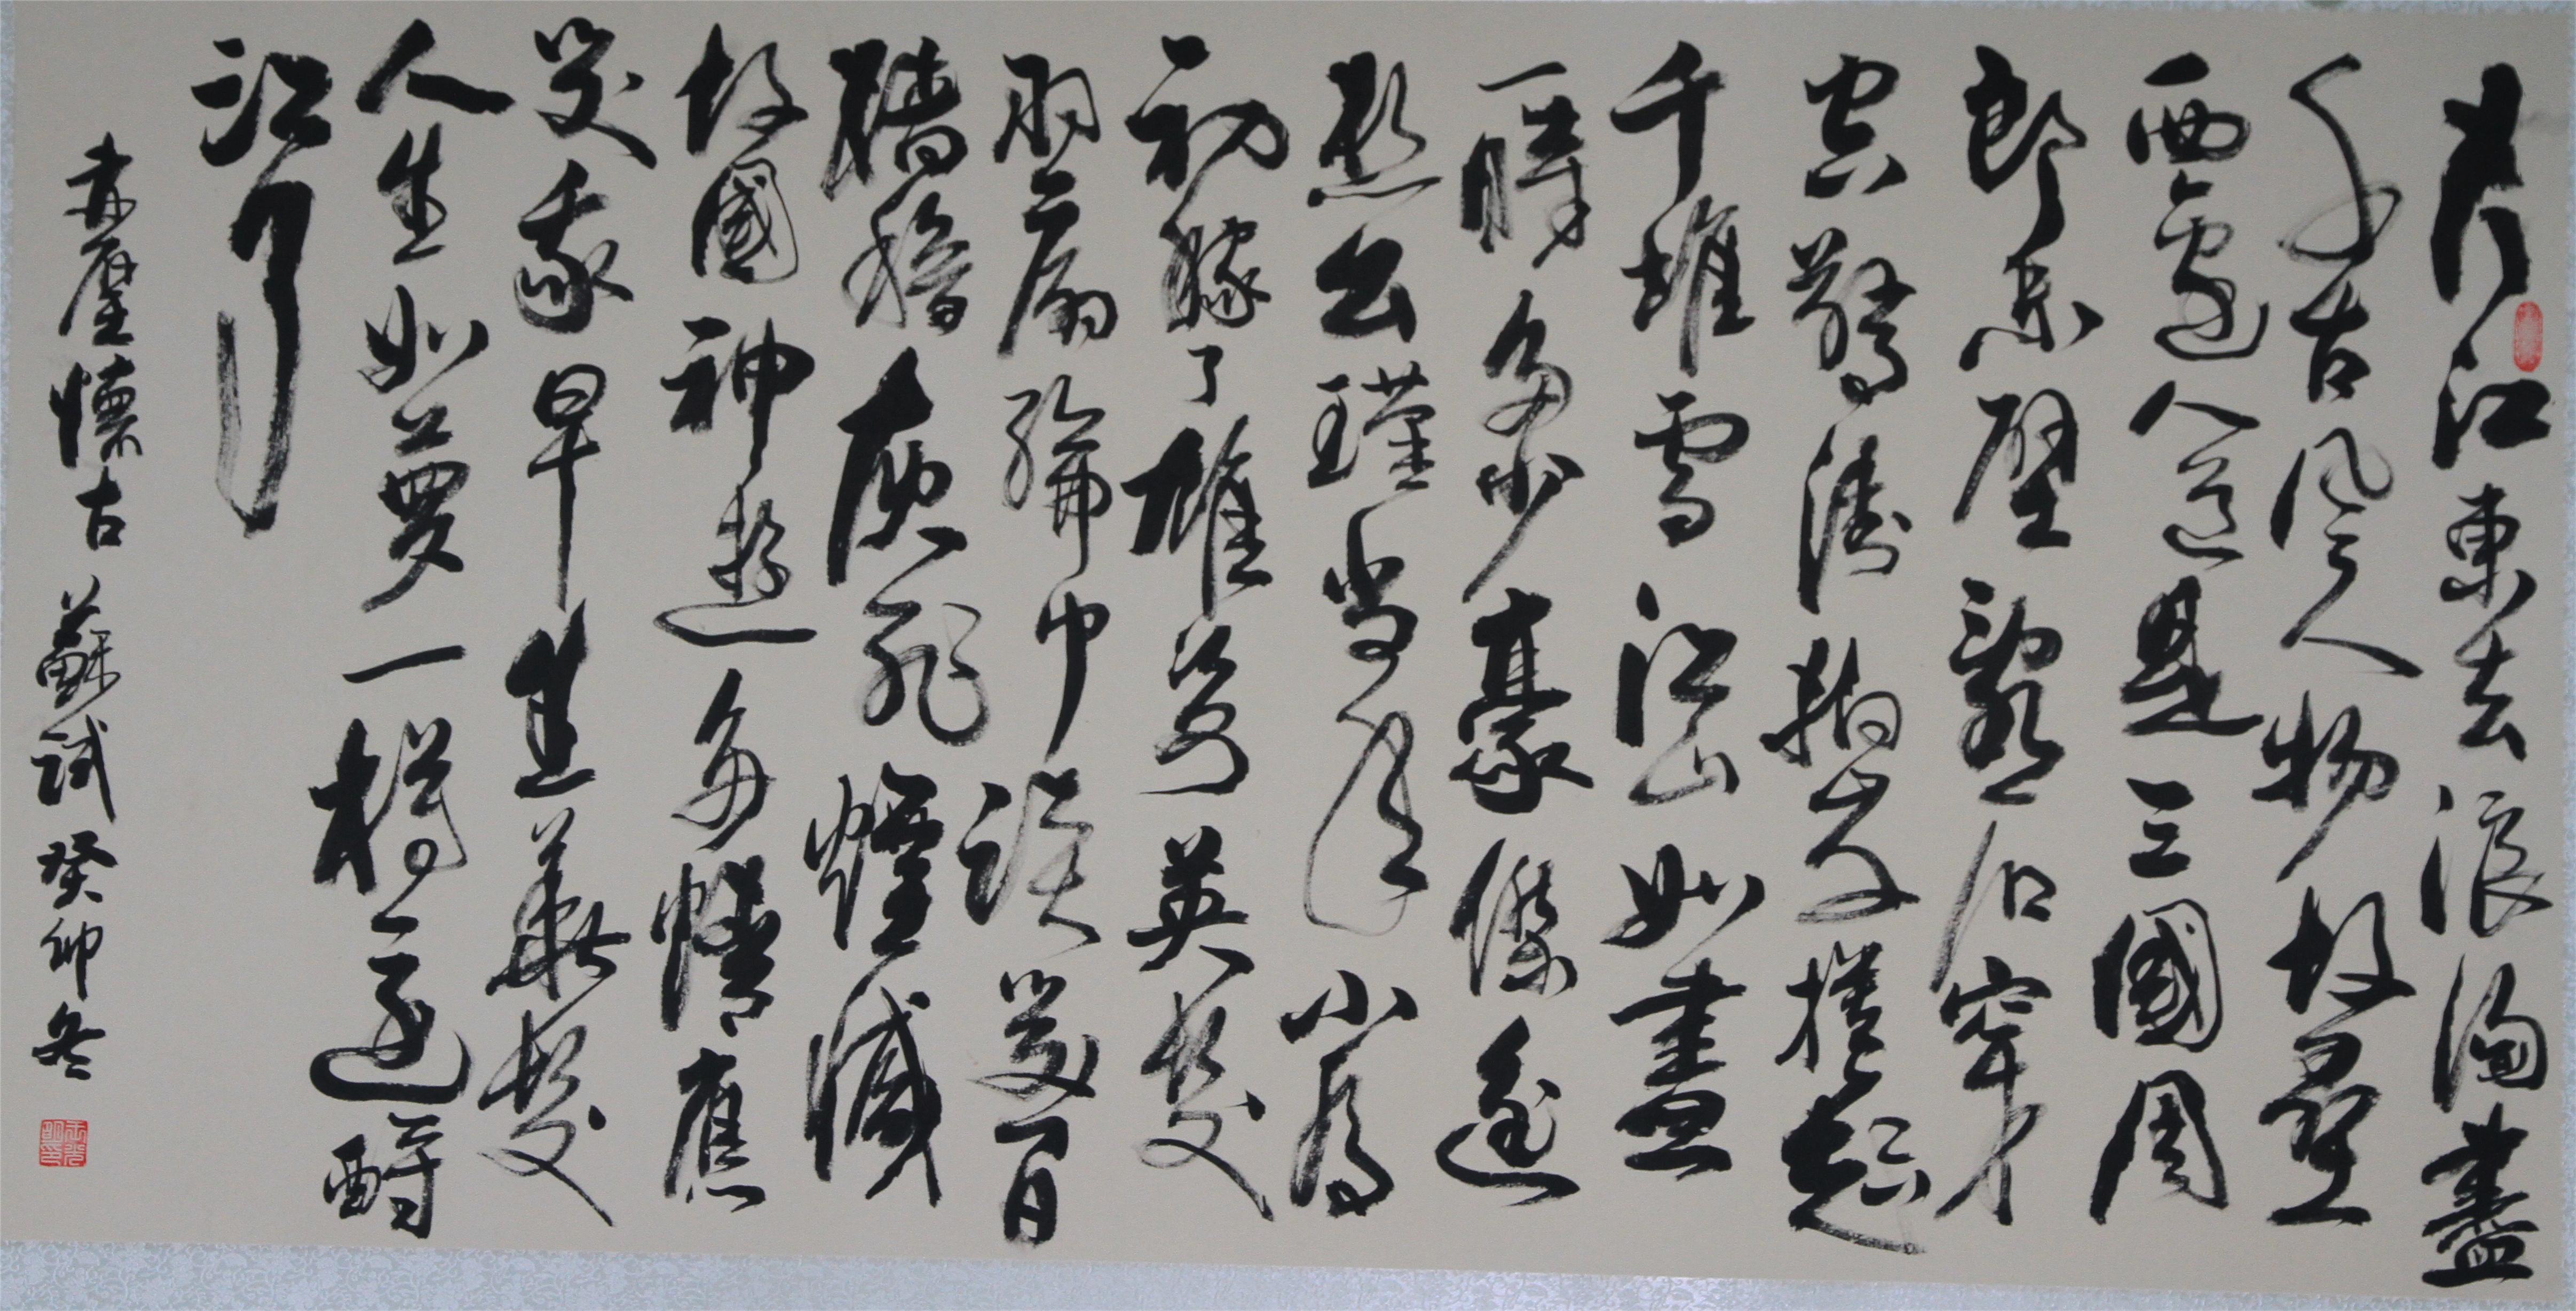 大江東去浪淘盡
千古風流人物故壘
西邊人道是三國周
郎赤壁亂石穿
空驚濤拍岸捲起
千堆雪江山如畫
一時多少豪傑遥
想公瑾當年小喬
初嫁了雄姿英發
羽扇綸巾談笑間
檣櫓灰飛煙滅
故國神遊多情應
笑我早生華髮
人生如夢一樽還酹
江月
赤壁懷古 蘇軾 癸卯冬